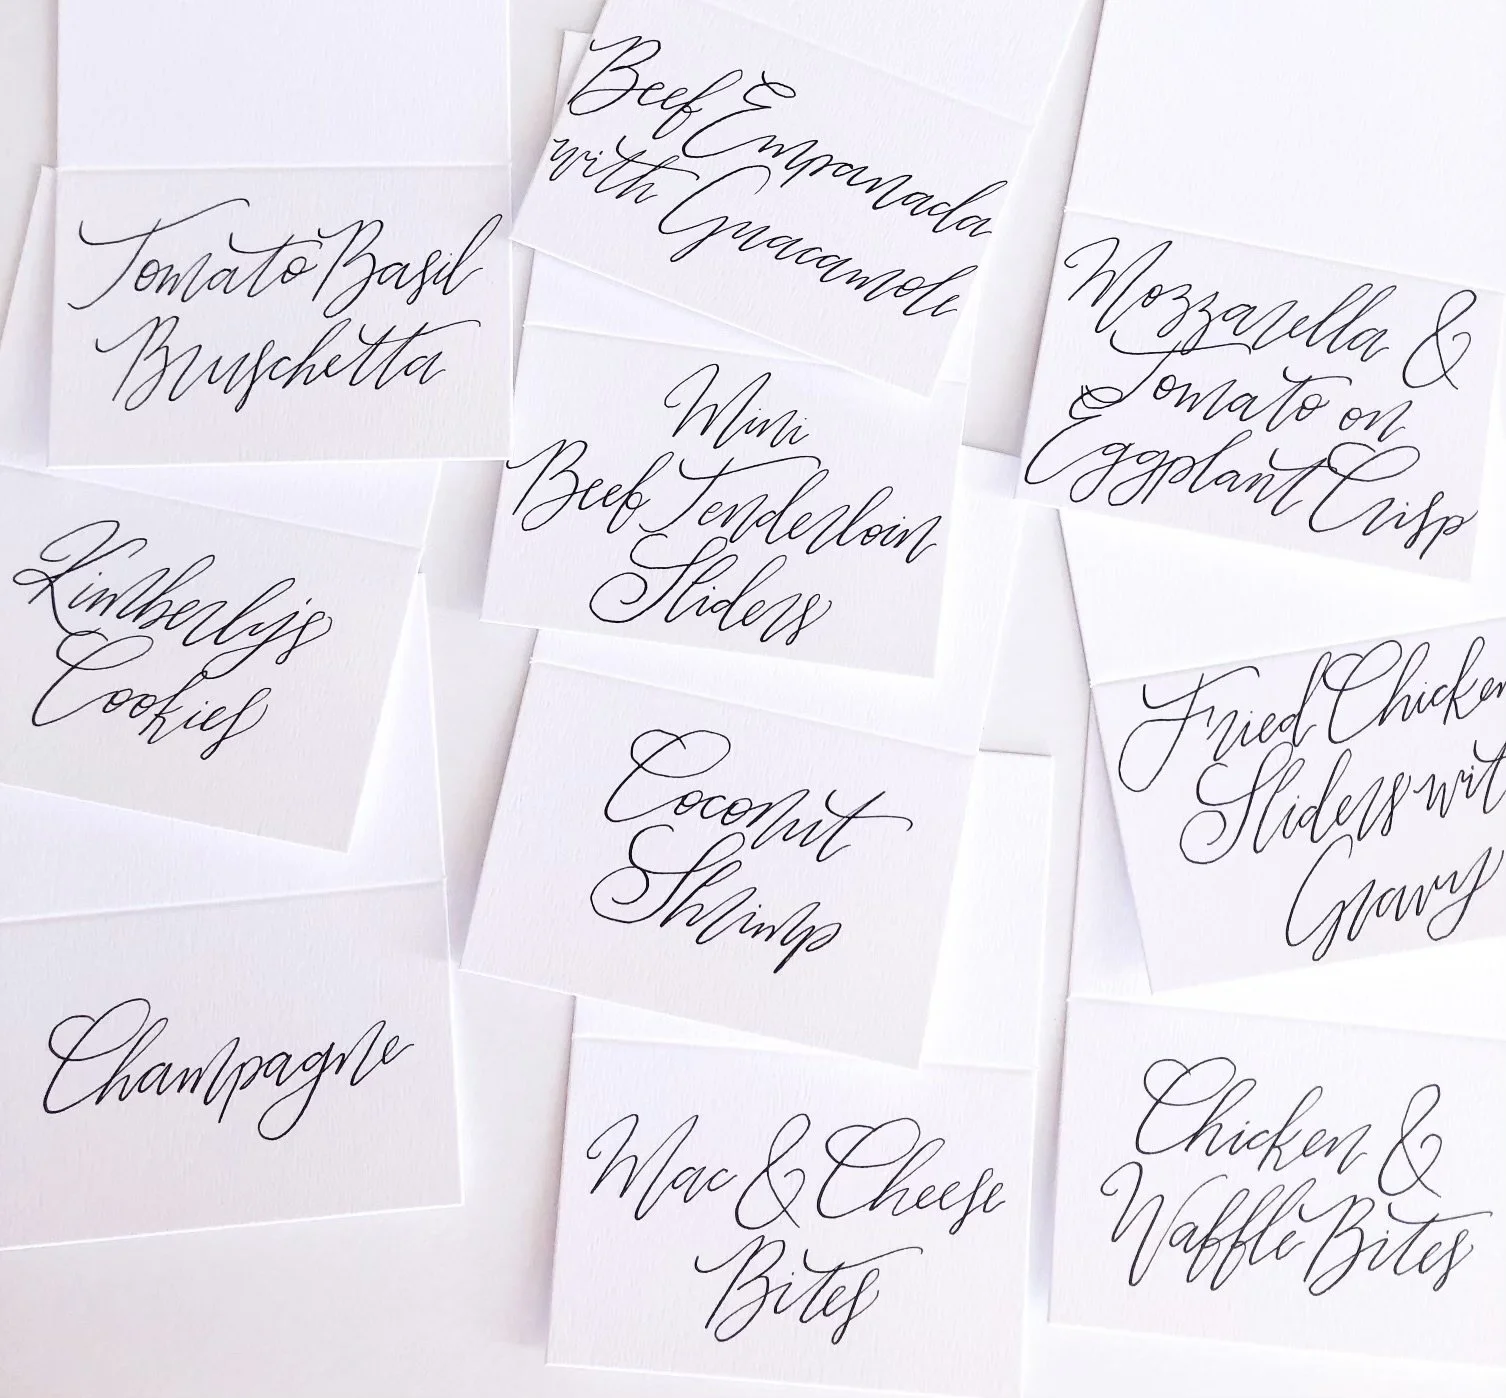 Beef Empanada
with Guacamole
Tomato Basil
Bruschetta
Mozzarella &
Tomato on
Eggplant Crisp
Mini
Beef Tenderloin
Sliders
Kimberly's
Cookies
Fried Chicken
Sliders wit
Gravy
Coconut
Shrimp
Champagne
Mac & Cheese
Bites
Chicken &
Waffle Bites